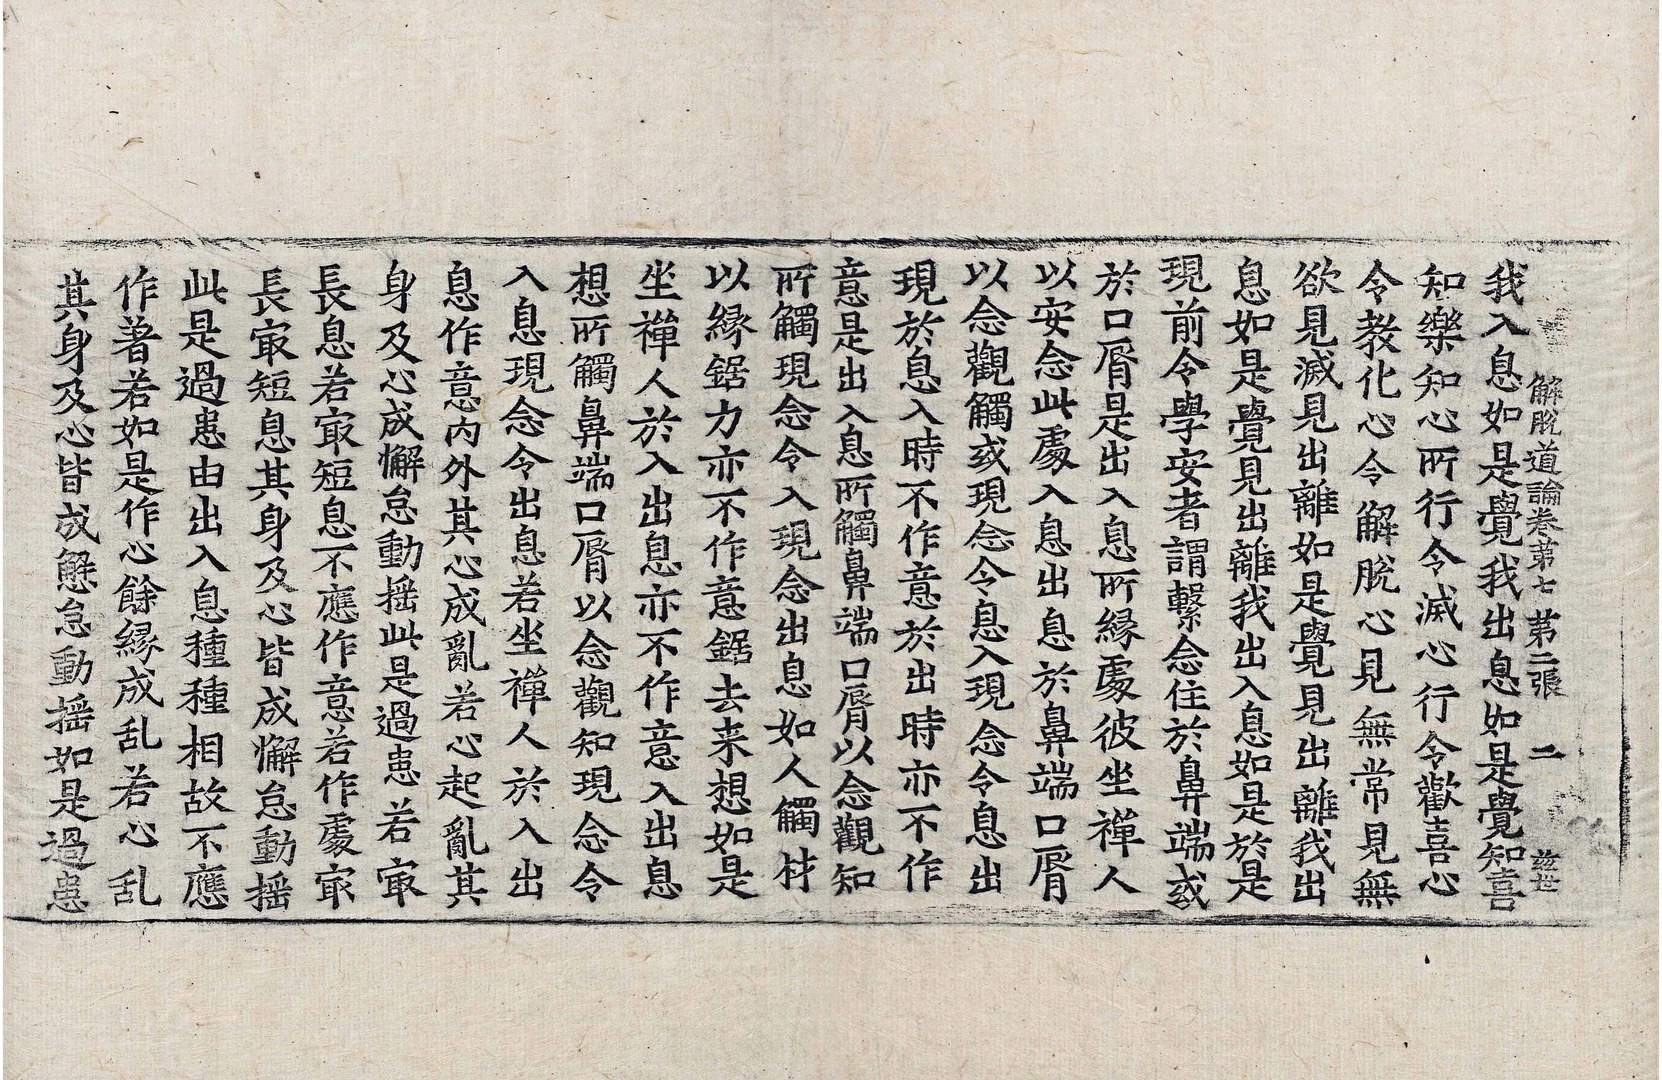 解脫道論卷第七　第二張　二　茲
我入息如是覺我出息如是覺知喜
知樂知心所行令滅心行令歡喜心
令教化心令解脫心見無常見無
欲見滅見出離如是覺見出離我出
息如是覺見出離我出入息如是於是
現前令學安者謂繫念住於鼻端或
於口脣是出入息所縁處彼坐禪人
以安念此處入息出息於鼻端口脣
以念觀觸或現念令息入現念令息出
現於息入時不作意於出時亦不作
意是出入息所觸鼻端口脣以念觀知
所觸現念令入現念出息如人觸材
以縁鋸力亦不作意鋸去来想如是
坐禪人於入出息亦不作意入出息
想所觸鼻端口脣以念觀知現念令
入息現念令出息若坐禪人於入出
息作意內外其心成亂若心起亂其
身及心成懈怠動揺此是過患若㝡
長息若㝡短息不應作意若作處㝡
長㝡短息其身及心皆成懈怠動揺
此是過患由出入息種種相故不應
作著若如是作心餘縁成乱若心乱
其身及心皆成懈怠動揺如是過患